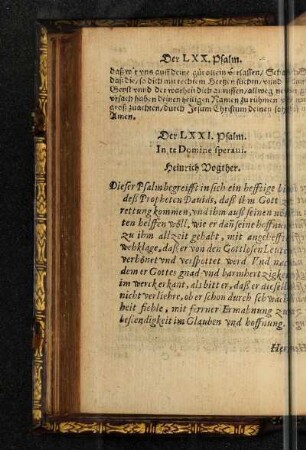 Der LXX. Psalm.
daß wir vns auff deine güte allein verlassen,
daß die, so dich mit rechtem Hertzen suchen, vnd
Geyst vnd der warheit dich anruffen, allweg
vrsach haben deinen heiligen Namen zu rühmen
groß zu achten, durch Jesum Christum deinen
Amen.
Der LXXI. Psalm.
In te Domine speraui.
Heinrich Vogther.
Dieser Psalm begreifft in sich ein hefftige
deß Propheten Dauids, daß ihm Gott
rettung kommen, vnd ihm auß seinen
ten helffen wöll, wie er dañ seine hoffnung
zu ihm allzeit gehabt, mit angehen
wehklage, daß er von den Gottlosen Leuten
verhönet vnd verspottet werd. Vnd nach
dem er Gottes gnad vnd barmhertzigkeit
im werck erkant, als bitt er, daß er dieselb
nicht verliehre, ob er schon durch schwach
heit fiehle, mit ferrner Ermahnung zu
bestendigkeit im Glauben vnd hoffnung.